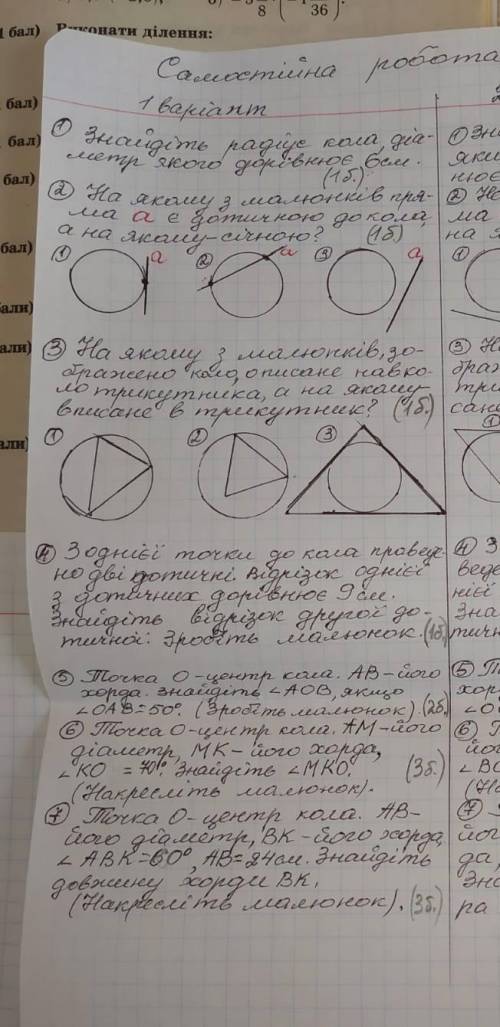 Виконати ділення:
Самостійна робота
1 варіант
① Знайдіть радіус кола, діа-
метр якого дорівнює 6см.
(1б.)
② На якому з малюнків пря-
ма а є дотичною до кола,
а на якому-січною? (1б.)
① а ② а ③ а
③ На якому з малюнків, зо-
бражено коло, описане навко-
ло трикутника, а на якому-
вписане в трикутник? (1б.)
① ② ③
④ З однієї точки до кола проведе-
но дві дотичні. Відрізок однієї
з дотичних дорівнює 9см.
Знайдіть відрізок другої до-
тичної. Зробіть малюнок. (1б.)
⑤ Точка О-центр кола. АВ-його
хорда. Знайдіть ∠АОВ, якщо
∠ОАВ=50°. (Зробіть малюнок) (2б.)
⑥ Точка О-центр кола. АМ-його
діаметр, МК-його хорда,
∠КО =70°. Знайдіть ∠МКО. (3б.)
(Накресліть малюнок).
⑦ Точка О-центр кола. АВ-
його діаметр, ВК-його хорда,
∠АВК=60°, АВ=24см. Знайдіть
довжину хорди ВК.
(Накресліть малюнок). (3б.)